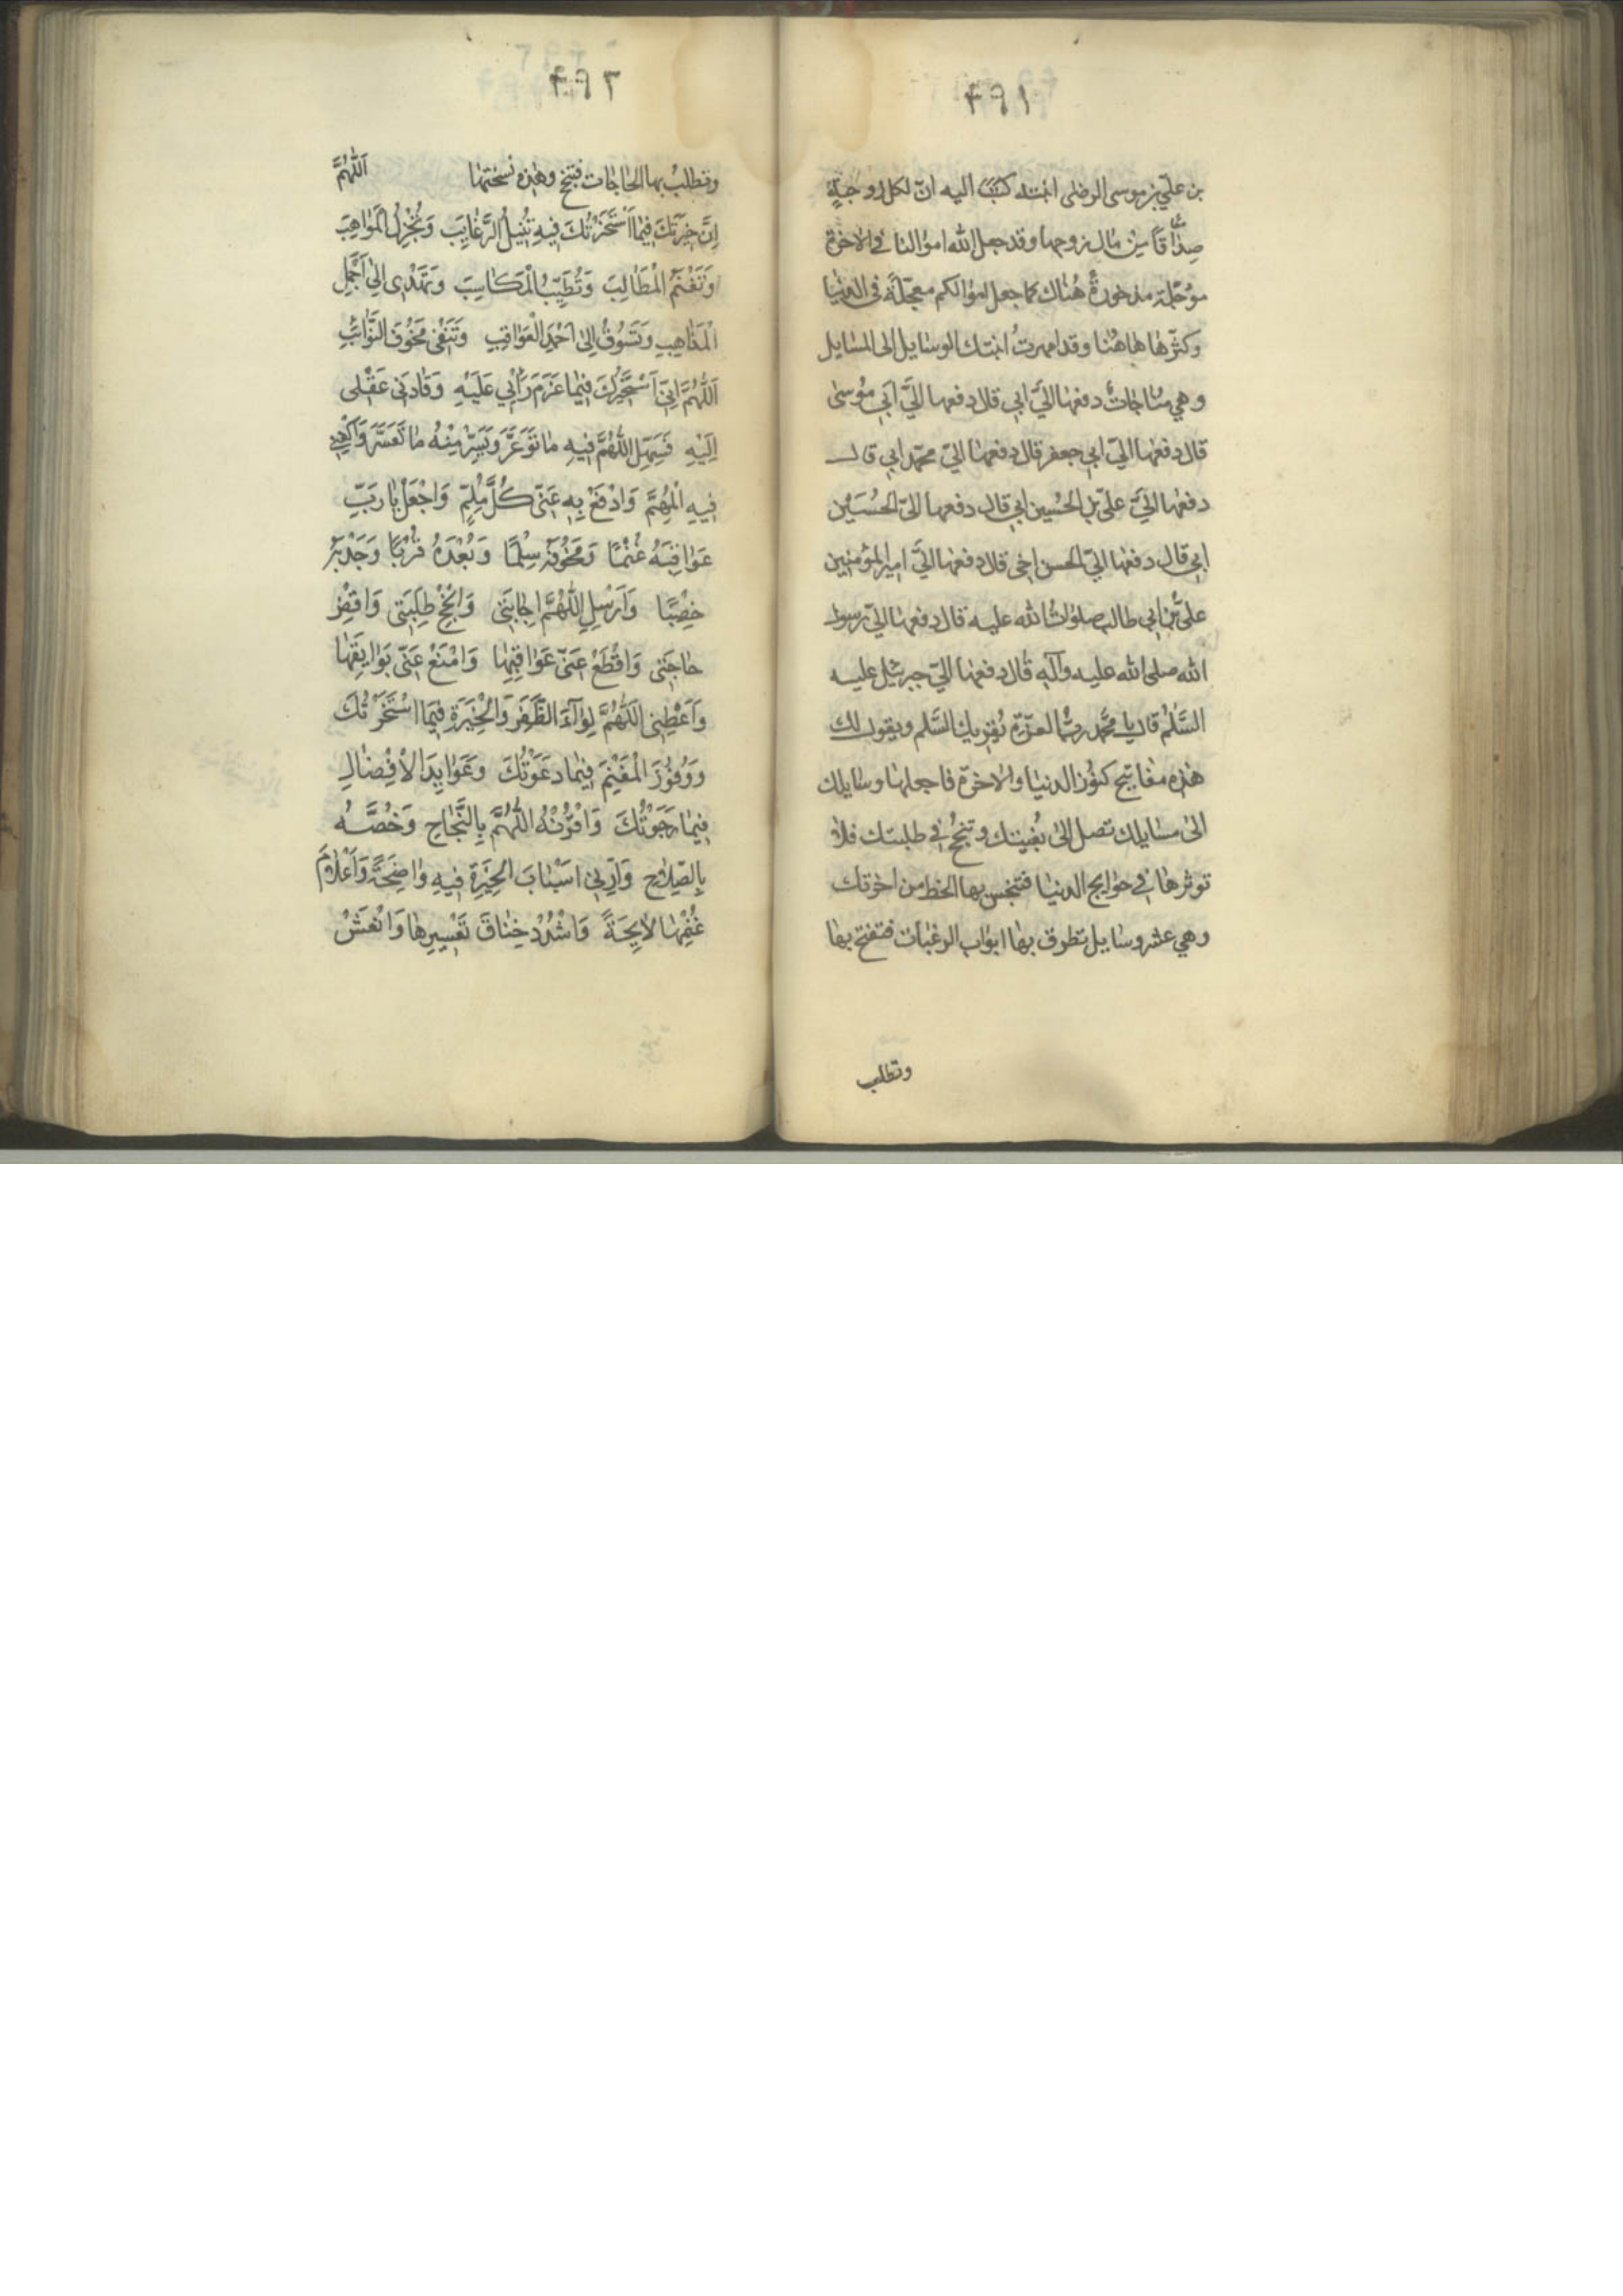 ٤٩١
بن علي بن موسى الرضى ابنته كتب اليه ان لكل زوجة
صداقا من مال زوجها وقد جعل الله اموالنا في الاخرة
موجلة مذخورة هناك كما جعل اموالكم معجلة في الدنيا
وكثرها هاهنا وقد امهرت ابنتك الوسايل الى المسايل
وهي مناجات دفعها اليّ ابي قال دفعها اليّ ابي موسى
قال دفعها اليّ ابي جعفر قال دفعها اليّ محمد ابي قال
دفعها اليّ علي بن الحسين ابي قال دفعها اليّ الحسين
ابي قال دفعها اليّ الحسن اخي قال دفعها اليّ امير المؤمنين
علي بن ابي طالب صلوات الله عليه قال دفعها اليّ رسول
الله صلى الله عليه وآله قال دفعها اليّ جبرئيل عليه
السلم قال يا محمد رب العزة يقريك السلم ويقول لك
هذه مفاتيح كنوز الدنيا والاخرة فاجعلها وسايلك
الى مسايلك تصل الى بغيتك وتنجح في طلبتك فلا
توثرها في حوايج الدنيا فتبخس بها الحظ من اخرتك
وهي عشر وسايل تطرق بها ابواب الرغبات فتفتح بها
وتطلب
٤٩٢
وتطلب بها الحاجات فتنجح وهذه نسختها اَللّهُمَّ
اِنَّ خِيَرَتَكَ فيمَا اسْتَخَرْتُكَ فيهِ تُنيلُ الرَّغايِبَ وَتُجْزِلُ الْمَواهِبَ
وَتُغْنِمُ الْمَطالِبَ وَتُطَيِّبُ الْمَكاسِبَ وَتَهْدى اِلى اَجْمَلِ
الْمَذاهِبِ وَتَسُوقُ اِلى اَحْمَدِ الْعَواقِبِ وَتَنْفى مَخُوفَ النَّوائِبِ
اَللّهُمَّ اِنّى اَسْتَخيرُكَ فيما عَزَمَ رَأْيى عَلَيْهِ وَقادَنى عَقْلى
اِلَيْهِ فَسَهِّلِ اللّهُمَّ فيهِ ما تَوَعَّرَ وَيَسِّرْ مِنْهُ ما تَعَسَّرَ وَاكْفِنى
فيهِ الْمُهِمَّ وَادْفَعْ بِهِ عَنّى كُلَّ مُلِمٍّ وَاجْعَلْ يا رَبِّ
عَواقِبَهُ غُنْمًا وَمَخُوفَهُ سِلْمًا وَبُعْدَهُ قُرْبًا وَجَدْبَهُ
خِصْبًا وَاَرْسِلِ اللّهُمَّ اِجابَتى وَاَنْجِحْ طَلِبَتى وَاقْضِ
حاجَتى وَاقْطَعْ عَنّى عَوائِقَها وَامْنَعْ عَنّى بَوايِقَها
وَاَعْطِنى اللّهُمَّ لِوآءَ الظَّفَرِ وَالْخِيَرَةِ فيمَا اسْتَخَرْتُكَ
وَوُفُورَ الْمَغْنَمِ فيما دَعَوْتُكَ وَعَوايِدَ الْاِفْضالِ
فيما رَجَوْتُكَ وَاقْرُنْهُ اللّهُمَّ بِالنَّجاحِ وَخُصَّهُ
بِالصَّلاحِ وَاَرِنى اَسْبابَ الْخِيَرَةِ فيهِ واضِحَةً وَاَعْلامَ
غُنْمِها لايِحَةً وَاشْدُدْ خِناقَ تَعْسيرِها وَانْعَشْ